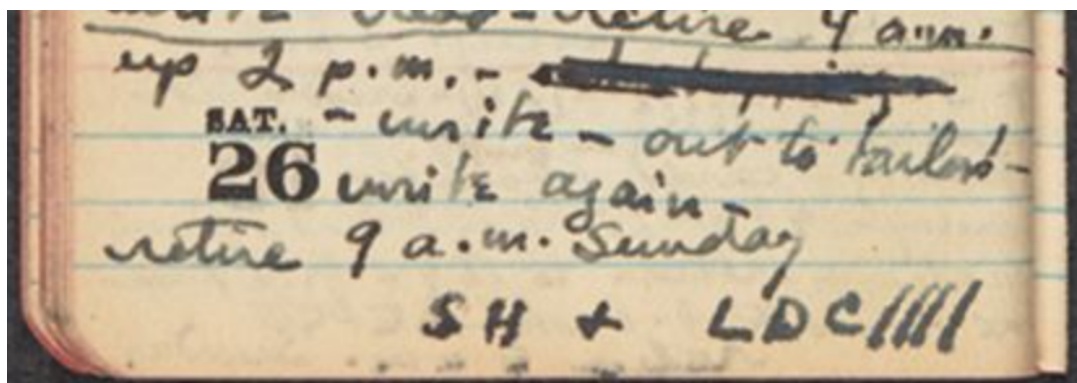 write read - retire 9 a.m.
up 2 p.m. -
SAT. - write - out to tailors' -
26 write again -
retire 9 a.m. Sunday
SH & LDC ////